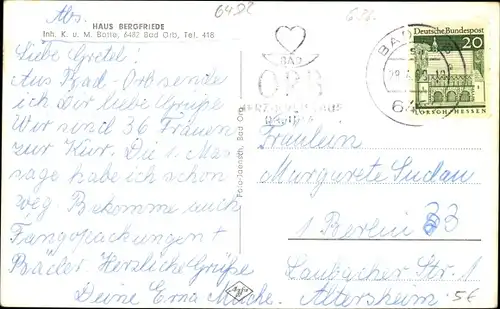 Abs. HAUS BERGFRIEDE
Inh. K. u. M. Botte, 6482 Bad Orb, Tel. 418
6482
Liebe Gretel!
Aus Bad-Orb sende
ich Dir liebe Grüße
Wir sind 36 Frauen
zur Kur. Die 1. Mas-
sage habe ich schon
weg. Bekomme auch
Fangopackungen +
Bäder Herzliche Grüße
Deine Erna
Foto-Jaensch, Bad Orb
BAD
ORB
Deutsche Bundespost
20
LORSCH · HESSEN
BAD
Fräulein
Margarete Sudau
1 Berlin 33
Laubacher Str. 1
Altersheim
5€